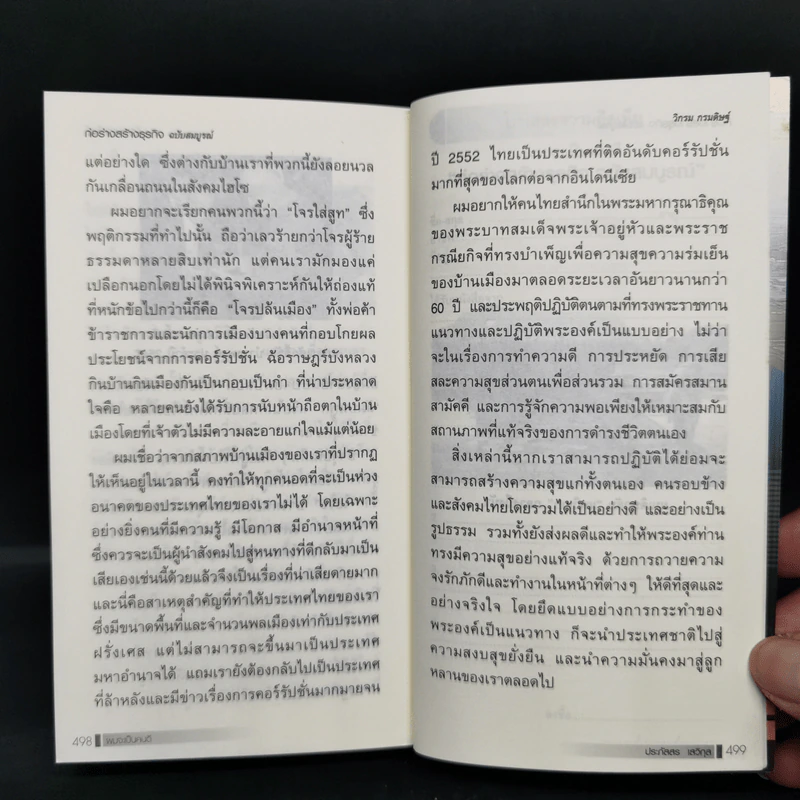 ก่อร่างสร้างธุรกิจ ฉบับสมบูรณ์
แต่อย่างใด ซึ่งต่างกับบ้านเราที่พวกนี้ยังลอยนวล
กันเกลื่อนถนนในสังคมไฮโซ
ผมอยากจะเรียกคนพวกนี้ว่า “โจรใส่สูท” ซึ่ง
พฤติกรรมที่ทำไปนั้น ถือว่าเลวร้ายกว่าโจรผู้ร้าย
ธรรมดาหลายสิบเท่านัก แต่คนเรามักมองแค่
เปลือกนอกโดยไม่ได้พินิจพิเคราะห์กันให้ถ่องแท้
ที่หนักข้อไปกว่านี้ก็คือ “โจรปล้นเมือง” ทั้งพ่อค้า
ข้าราชการและนักการเมืองบางคนที่กอบโกยผล
ประโยชน์จากการคอร์รัปชั่น ฉ้อราษฎร์บังหลวง
กินบ้านกินเมืองกันเป็นกอบเป็นกำ ที่น่าประหลาด
ใจคือ หลายคนยังได้รับการนับหน้าถือตาในบ้าน
เมืองโดยที่เจ้าตัวไม่มีความละอายแก่ใจแม้แต่น้อย
ผมเชื่อว่าจากสภาพบ้านเมืองของเราที่ปรากฏ
ให้เห็นอยู่ในเวลานี้ คงทำให้ทุกคนอดที่จะเป็นห่วง
อนาคตของประเทศไทยของเราไม่ได้ โดยเฉพาะ
อย่างยิ่งคนที่มีความรู้ มีโอกาส มีอำนาจหน้าที่
ซึ่งควรจะเป็นผู้นำสังคมไปสู่หนทางที่ดีกลับมาเป็น
เสียเองเช่นนี้ด้วยแล้วจึงเป็นเรื่องที่น่าเสียดายมาก
และนี่คือสาเหตุสำคัญที่ทำให้ประเทศไทยของเรา
ซึ่งมีขนาดพื้นที่และจำนวนพลเมืองเท่ากับประเทศ
ฝรั่งเศส แต่ไม่สามารถจะขึ้นมาเป็นประเทศ
มหาอำนาจได้ แถมเรายังต้องกลับไปเป็นประเทศ
ที่ล้าหลังและมีข่าวเรื่องการคอร์รัปชั่นมากมายจน
498 ผมจะเป็นคนดี
วิกรม กรมดิษฐ์
ปี 2552 ไทยเป็นประเทศที่ติดอันดับคอร์รัปชั่น
มากที่สุดของโลกต่อจากอินโดนีเซีย
ผมอยากให้คนไทยสำนึกในพระมหากรุณาธิคุณ
ของพระบาทสมเด็จพระเจ้าอยู่หัวและพระราช
กรณียกิจที่ทรงบำเพ็ญเพื่อความสุขความร่มเย็น
ของบ้านเมืองมาตลอดระยะเวลาอันยาวนานกว่า
60 ปี และประพฤติปฏิบัติตนตามที่ทรงพระราชทาน
แนวทางและปฏิบัติพระองค์เป็นแบบอย่าง ไม่ว่า
จะในเรื่องการทำความดี การประหยัด การเสีย
สละความสุขส่วนตนเพื่อส่วนรวม การสมัครสมาน
สามัคคี และการรู้จักความพอเพียงให้เหมาะสมกับ
สถานภาพที่แท้จริงของการดำรงชีวิตตนเอง
สิ่งเหล่านี้หากเราสามารถปฏิบัติได้ย่อมจะ
สามารถสร้างความสุขแก่ทั้งตนเอง คนรอบข้าง
และสังคมไทยโดยรวมได้เป็นอย่างดี และอย่างเป็น
รูปธรรม รวมทั้งยังส่งผลดีและทำให้พระองค์ท่าน
ทรงมีความสุขอย่างแท้จริง ด้วยการถวายความ
จงรักภักดีและทำงานในหน้าที่ต่างๆ ให้ดีที่สุดและ
อย่างจริงใจ โดยยึดแบบอย่างการกระทำของ
พระองค์เป็นแนวทาง ก็จะนำประเทศชาติไปสู่
ความสงบสุขยั่งยืน และนำความมั่นคงมาสู่ลูก
หลานของเราตลอดไป
ประภัสสร เสวิกุล 499